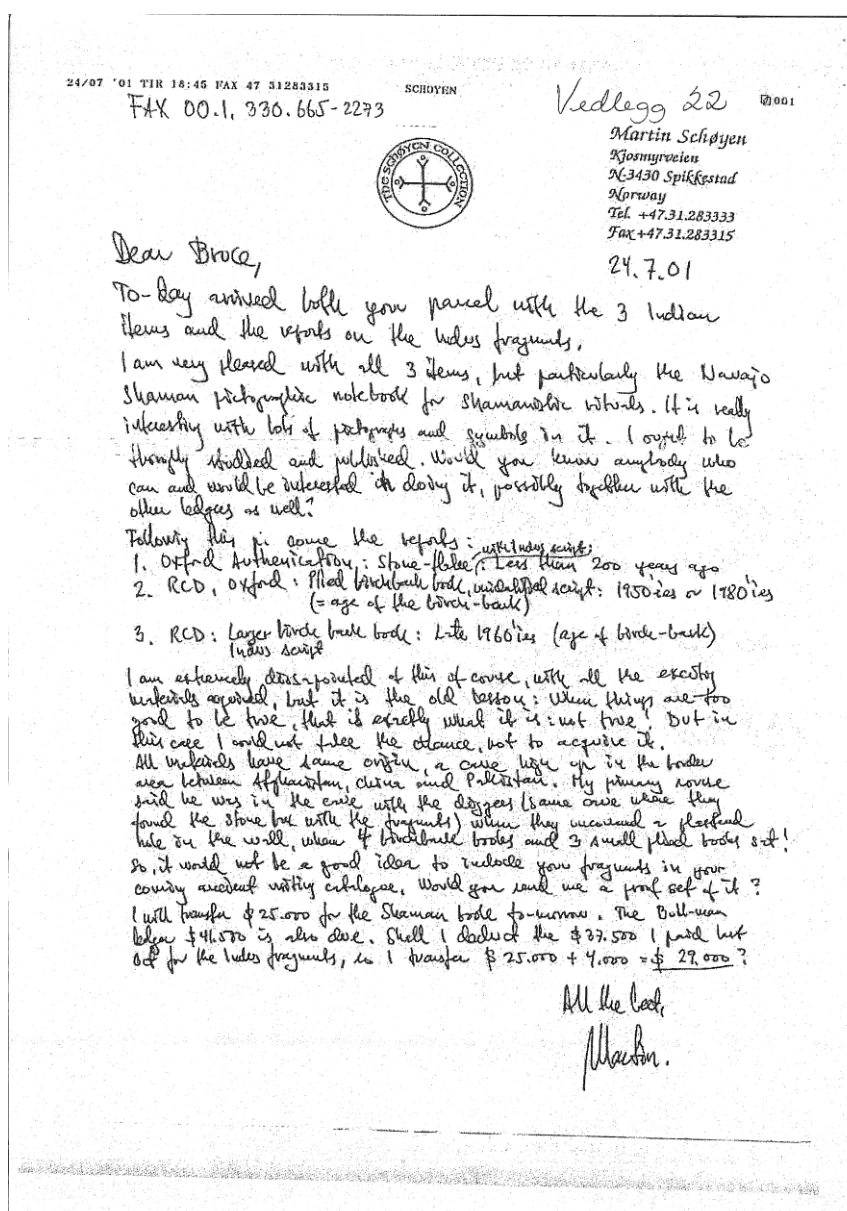 24/07 '01 TIR 18:45 FAX 47 31283315
SCHOYEN
001
FAX 00.1. 330.665-2273
Vedlegg 22
THE SCHØYEN COLLECTION
Martin Schøyen
Kjosmyrveien
N-3430 Spikkestad
Norway
Tel. +47.31.283333
Fax +47.31.283315
24.7.01
Dear Bruce,
To-day arrived both your parcel with the 3 Indian
items and the reports on the Indus fragments.
I am very pleased with all 3 items, but particularly the Navajo
Shaman pictographic notebook for shamanistic rituals. It is really
interesting with lots of pictographs and symbols in it. I ought to be
studied and published. Would you know anybody who
can and would be interested in doing it, possibly together with the
other ledgers as well?
Following this come the reports:
1. Oxford Authentication: Stone-flake with Indus script: Less than 200 years ago
2. RCD, Oxford: Plied birchbark book, unidentified script: 1950'ies or 1980'ies
(= age of the birch-bark)
3. RCD: Larger birch bark book: Late 1960'ies (age of birch-bark)
Indus script
I am extremely dissapointed of this of course, with all the exciting
materials acquired, but it is the old lesson: When things are too
good to be true, that is exactly what it is: not true! But in
this case I could not take the chance, not to acquire it.
All materials have same origin, a cave high up in the border
area between Afghanistan, China and Pakistan. My primary source
said he was in the cave with the diggers (same cave where they
found the stone box with the fragments) when they uncovered a plastered
hole in the wall, where 4 birchbark books and 3 small plied books sat!
So, it would not be a good idea to include your fragments in your
coming ancient writing catalogue. Would you send me a proof set of it?
I will transfer $25.000 for the Shaman book to-morrow. The Bull-man
ledger $41.500 is also due. Shall I deduct the $37.500 I paid last
Oct for the Indus fragments, so I transfer $25.000 + 4.000 = $ 29.000?
All the best,
Martin.